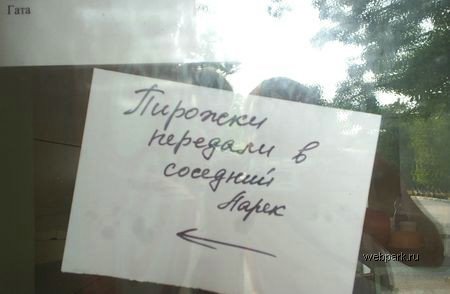 Гата
Пирожки
передали в
соседний
Ларек
webpark.ru